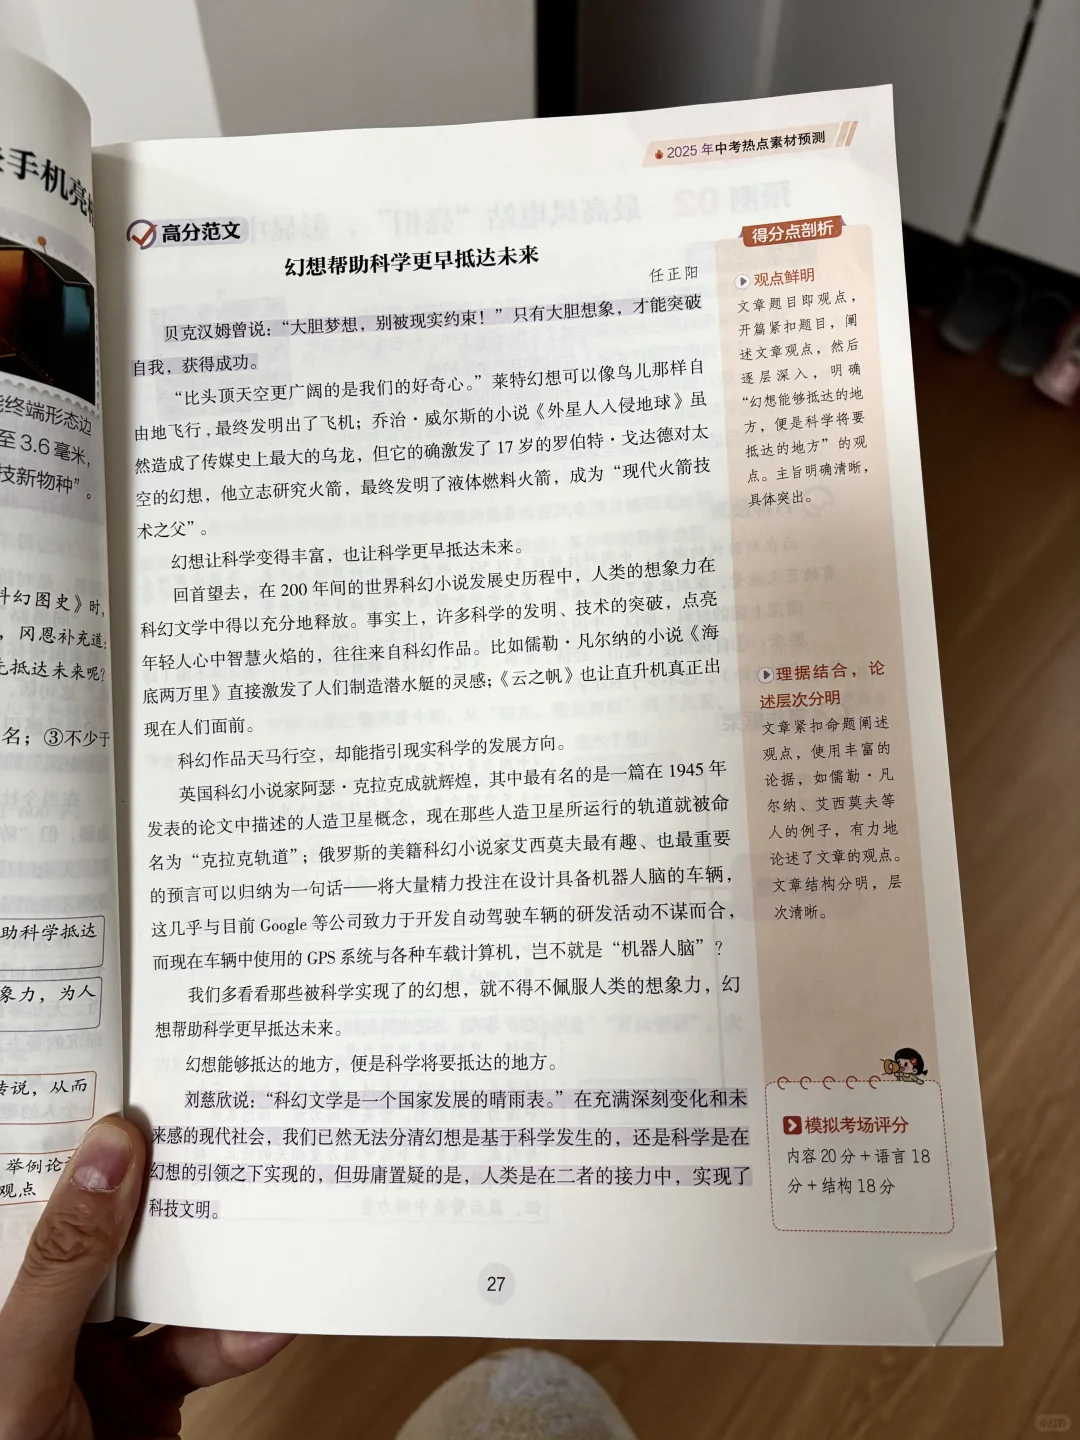 手机亮
能终端形态边
至 3.6 毫米，
技新物种”。
科幻图史》时，
，冈恩补充道：
先抵达未来呢？
名；③不少于
助科学抵达
象力，为人
传说，从而
举例论
观点
2025 年中考热点素材预测
高分范文
幻想帮助科学更早抵达未来
任正阳
贝克汉姆曾说：“大胆梦想，别被现实约束！”只有大胆想象，才能突破
自我，获得成功。
“比头顶天空更广阔的是我们的好奇心。”莱特幻想可以像鸟儿那样自
由地飞行，最终发明出了飞机；乔治·威尔斯的小说《外星人入侵地球》虽
然造成了传媒史上最大的乌龙，但它的确激发了 17 岁的罗伯特·戈达德对太
空的幻想，他立志研究火箭，最终发明了液体燃料火箭，成为“现代火箭技
术之父”。
幻想让科学变得丰富，也让科学更早抵达未来。
回首望去，在 200 年间的世界科幻小说发展史历程中，人类的想象力在
科幻文学中得以充分地释放。事实上，许多科学的发明、技术的突破，点亮
年轻人心中智慧火焰的，往往来自科幻作品。比如儒勒·凡尔纳的小说《海
底两万里》直接激发了人们制造潜水艇的灵感；《云之帆》也让直升机真正出
现在人们面前。
科幻作品天马行空，却能指引现实科学的发展方向。
英国科幻小说家阿瑟·克拉克成就辉煌，其中最有名的是一篇在 1945 年
发表的论文中描述的人造卫星概念，现在那些人造卫星所运行的轨道就被命
名为“克拉克轨道”；俄罗斯的美籍科幻小说家艾西莫夫最有趣、也最重要
的预言可以归纳为一句话——将大量精力投注在设计具备机器人脑的车辆，
这几乎与目前 Google 等公司致力于开发自动驾驶车辆的研发活动不谋而合，
而现在车辆中使用的 GPS 系统与各种车载计算机，岂不就是“机器人脑”？
我们多看看那些被科学实现了的幻想，就不得不佩服人类的想象力，幻
想帮助科学更早抵达未来。
幻想能够抵达的地方，便是科学将要抵达的地方。
刘慈欣说：“科幻文学是一个国家发展的晴雨表。”在充满深刻变化和未
来感的现代社会，我们已然无法分清幻想是基于科学发生的，还是科学是在
幻想的引领之下实现的，但毋庸置疑的是，人类是在二者的接力中，实现了
科技文明。
得分点剖析
观点鲜明
文章题目即观点，
开篇紧扣题目，阐
述文章观点，然后
逐层深入，明确
“幻想能够抵达的地
方，便是科学将要
抵达的地方”的观
点。主旨明确清晰，
具体突出。
理据结合，论
述层次分明
文章紧扣命题阐述
观点，使用丰富的
论据，如儒勒·凡
尔纳、艾西莫夫等
人的例子，有力地
论述了文章的观点。
文章结构分明，层
次清晰。
模拟考场评分
内容 20 分＋语言 18
分＋结构 18 分
27
小红书